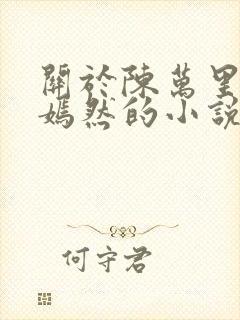 關於陳萬里
嫣然的小說
何守君